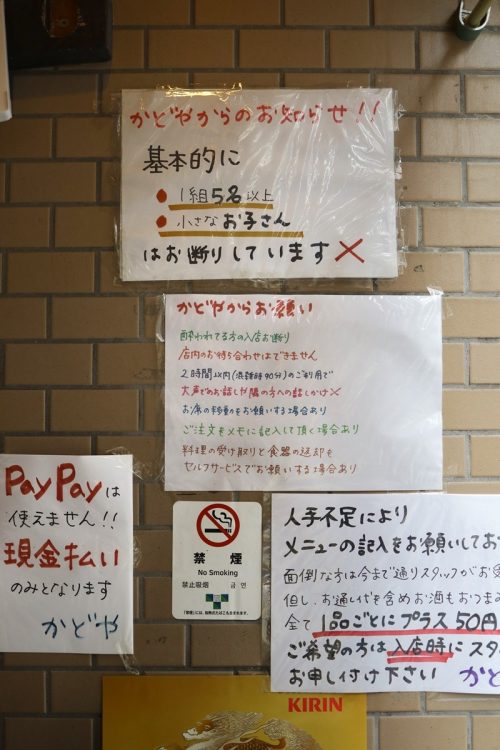 かどやからのお知らせ!!
基本的に
● 1組5名以上
● 小さなお子さん
はお断りしています×
かどやからお願い
酔われてる方の入店お断り
店内のお待ち合わせはできません
2時間以内(混雑時90分)のご利用で
大声でのお話しや隣の方への話しかけ×
お席の移動をお願いする場合あり
ご注文をメモに記入して頂く場合あり
料理の受け取りと食器の返却も
セルフサービスでお願いする場合あり
PayPayは
使えません!!
現金払い
のみとなります
かどや
禁煙
No Smoking
禁止吸烟 금연
人手不足により
メニューの記入をお願いしてお
面倒な方は今まで通りスタッフがお
但し、お通し代を含めお酒もおつまみ
全て1品ごとにプラス50円
ご希望の方は入店時にスタ
お申し付け下さい かど
KIRIN